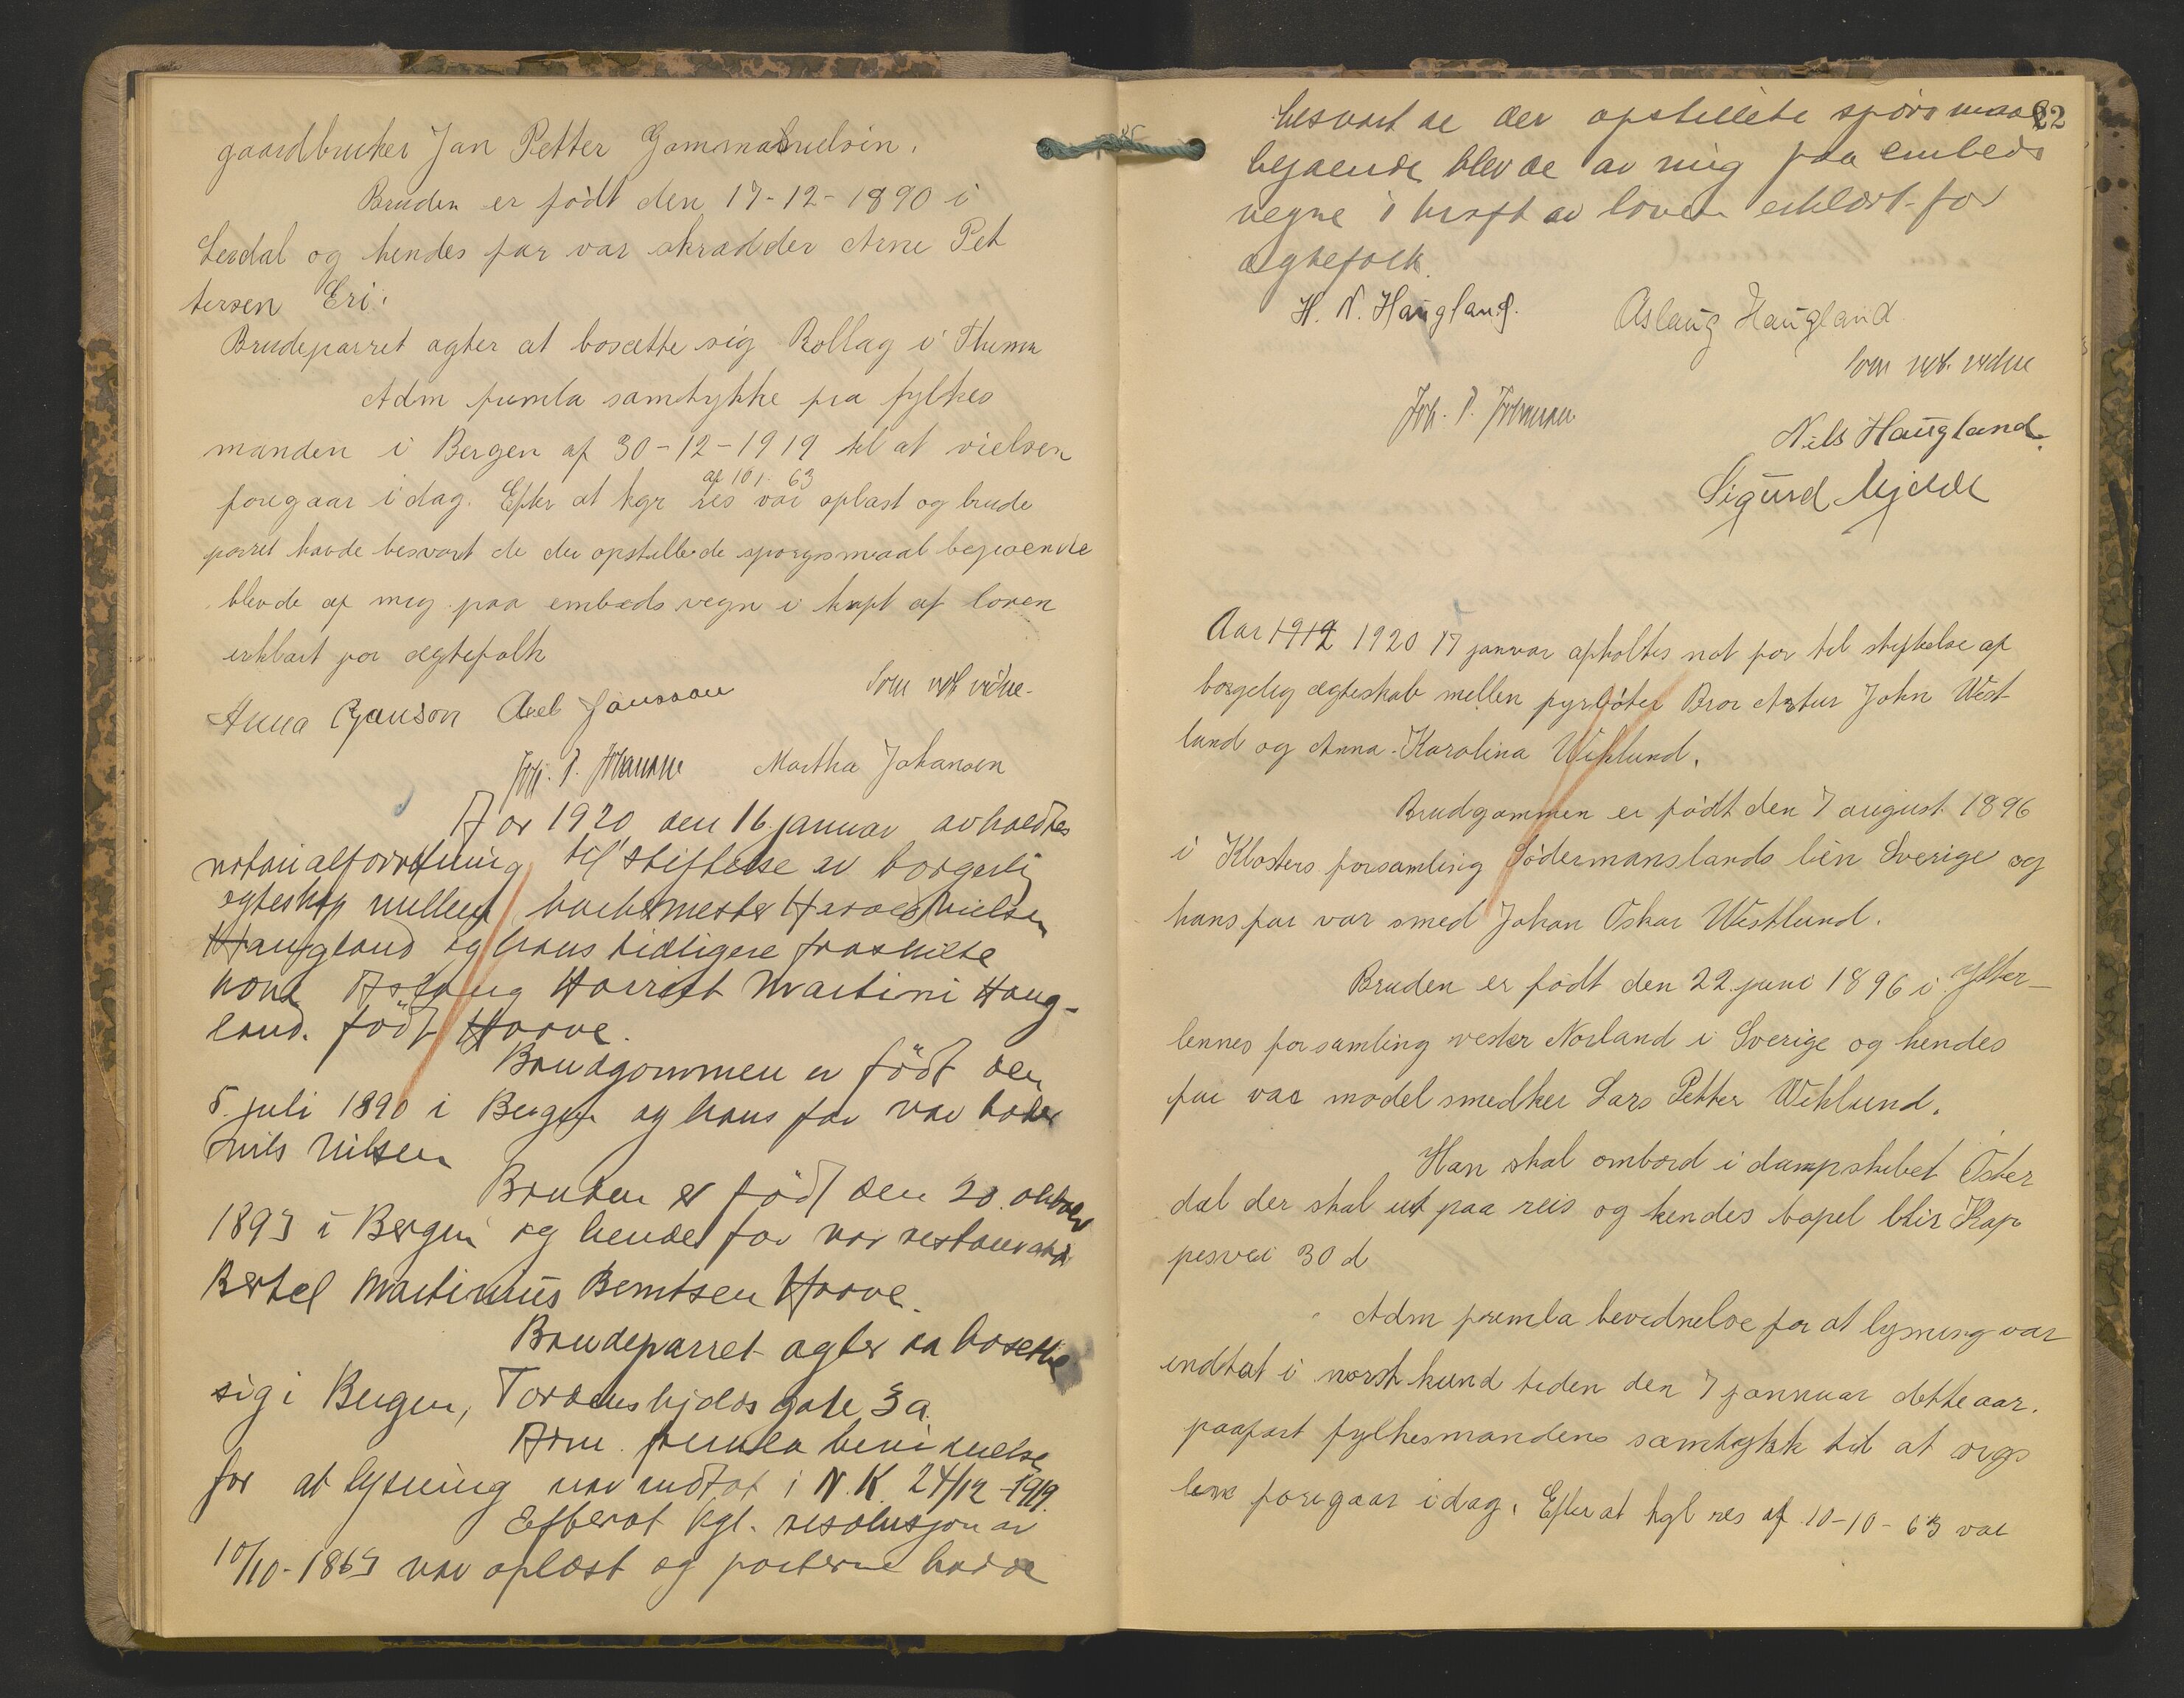 gaardbruker Jan Petter Gammalnielsin.
Bruden er födt den 17-12-1890 i
Lerdal og hendes far var skrædder Arne Pet
tersen Eri.
Brudeparret agter at bosætte sig Rollag i
Adm fremla samtykke fra fylkes
manden i Bergen af 30-12-1919 til at vielsen
af 10/10 63
foregaar i dag. Efter at kgr res var oplæst og brude
parret havde besvart de der opstillede spørgsmaal bejaende
blev de af mig paa embeds vegn i kraft af loven
erklært for ægtefolk
Som not vidne
Anna Janson Axel Jansson
Joh. P. Martha Johansen
Aar 1920 den 16. januar avholdtes
notarialforretning til stiftelse av borgerlig
egteskap mellem Harald Nielsen
Haugland og hans tidligere fraskilte
kone Aslaug Harriet Martini Haug-
land. födt Haave.
Brudgommen er födt den
5. juli 1890 i Bergen og hans far var baker
Nils Nilsen
Bruden er födt den 20. oktober
1893 i Bergen og hendes far var restauratör
Bertel Martinius Berntsen Haave.
Brudeparret agter aa bosette
sig i Bergen, Tordenskjolds gate 3a.
Adm. fremla bevidnelse
for at lysning var indtat i N. K. 24/12-1919.
Efterat kgl. resolusjon av
10/10-1863 var oplæst og parterne hadde
22
besvart de der opstillete spörsmaal
bejaende blev de av mig paa embeds
vegne i kraft av loven erklært for
ægtefolk.
H. N. Haugland. Aslaug Haugland.
Som not. vidne
Joh. P.
Nils Haugland.
Sigurd Mjelde
Aar 1919 1920 17 januar afholtes not for til stiftelse af
borgelig ægteskab mellen fyrböter Bror Artur John West
lund og Anna-Karolina Wiklund.
Brudgommen er födt den 7 august 1896
i Klosters forsamling Södermanslands lén Sverige og
hans far var smed Johan Oskar Westlund.
Bruden er födt den 22. juni 1896 i Ytter-
lennes forsamling vester Norland i Sverige og hendes
far var model smedker Lars Petter Wiklund.
Han skal ombord i dampskibet Öster
dal der skal ut paa reis og hendes bopel blir Kap
pesvei 30 d
Adm fremla bevidnelse for at lysning var
indtat i norsk kund tiden den 7 jannuar dette aar.
paafört fylkesmandens samtykk til at
foregaar i dag. Efter at kgl res af 10-10-63 var